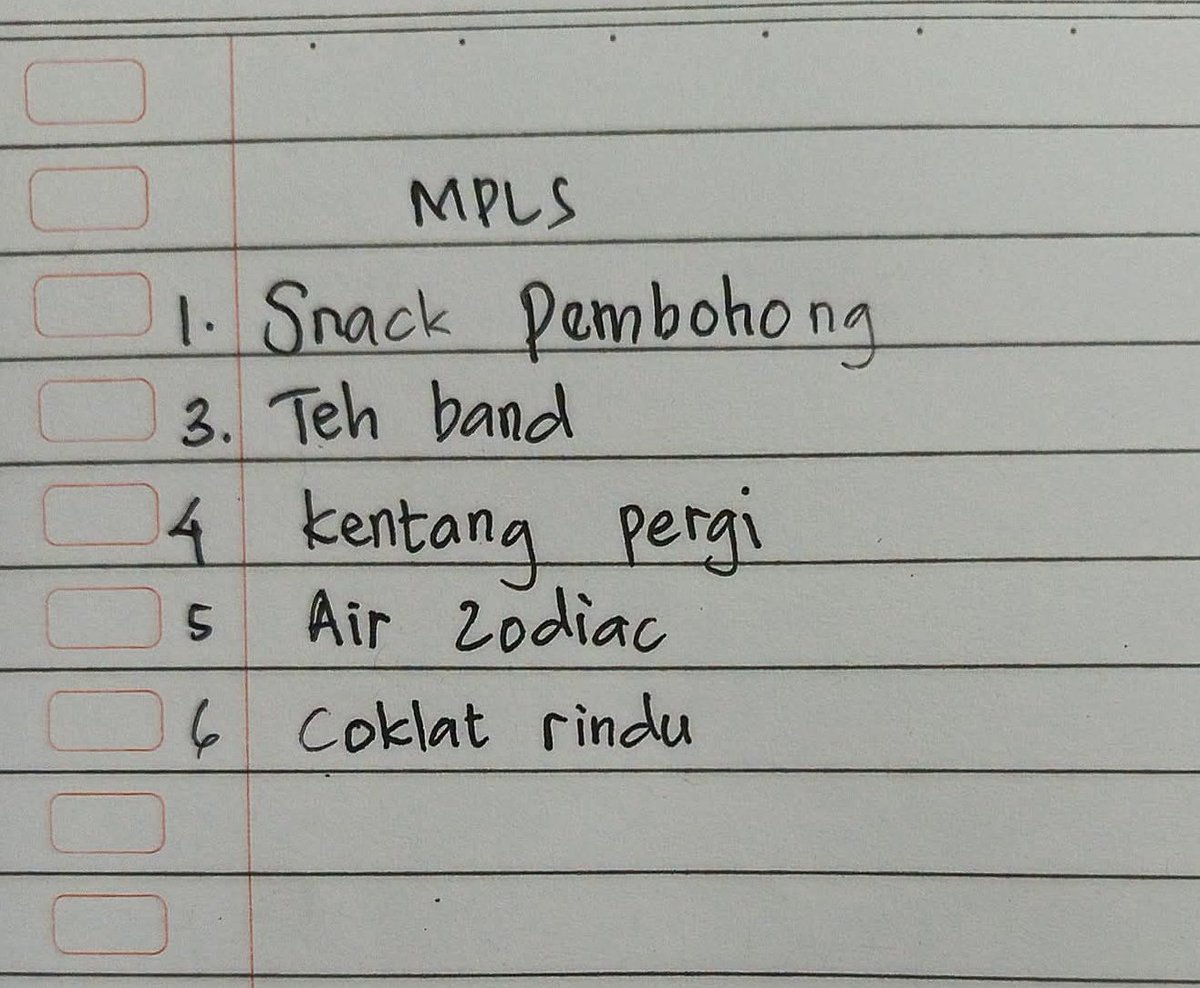 MPLS
1. Snack Pembohong
3. Teh band
4 kentang pergi
5 Air zodiac
6 Coklat rindu